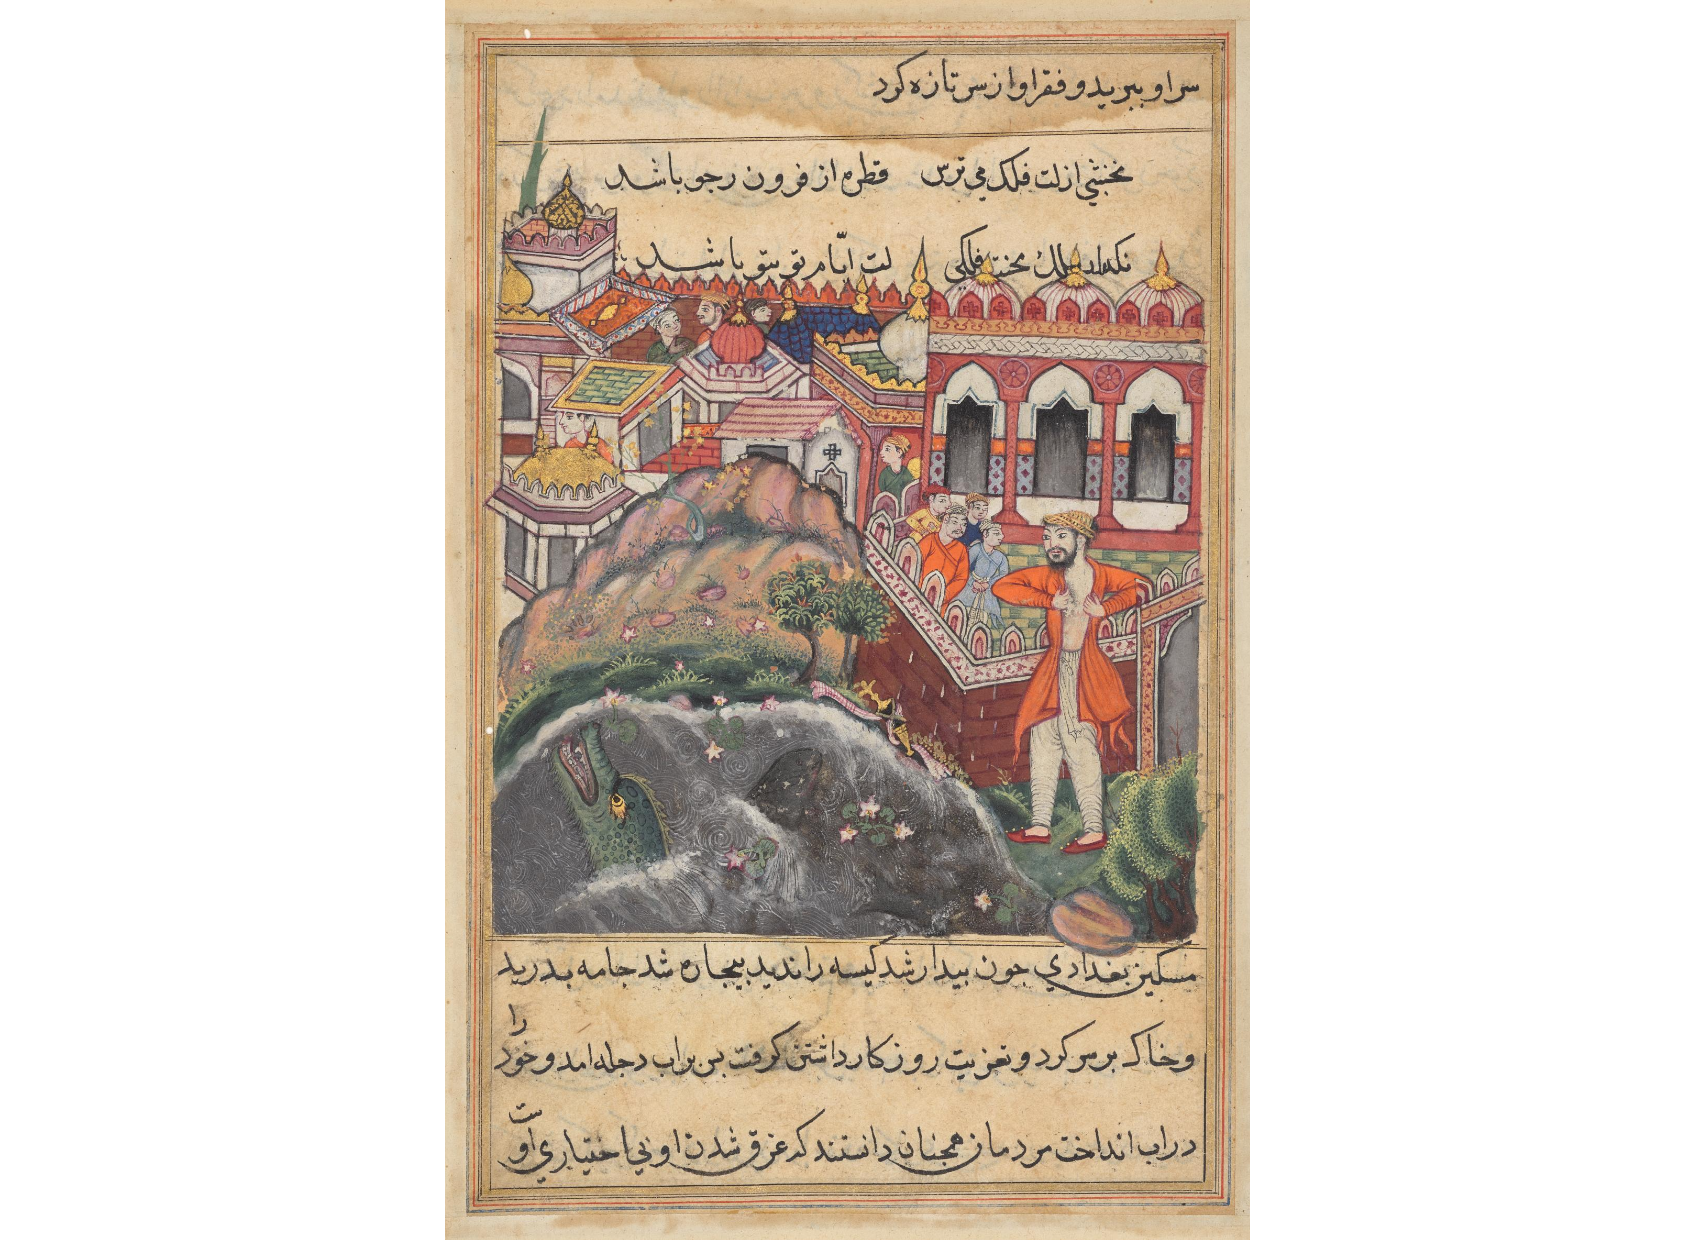 سر او ببرید و فقر او از سر تازه کرد
نخشبی از لت فلک می ترس قطره از فرون رجو باشد
لت ایام تو بتو باشد
مسکین بغدادی جون بیدار شد کیسه را ندید بیجاره شد جامه بدرید
و خاک بر سر کرد و تعزیت روزکار داشتن کرفت بس بر اب دجله امد و خود را
در اب انداخت مردمان همجنان دانستند که غرق شدن او بی اختیاری اوست